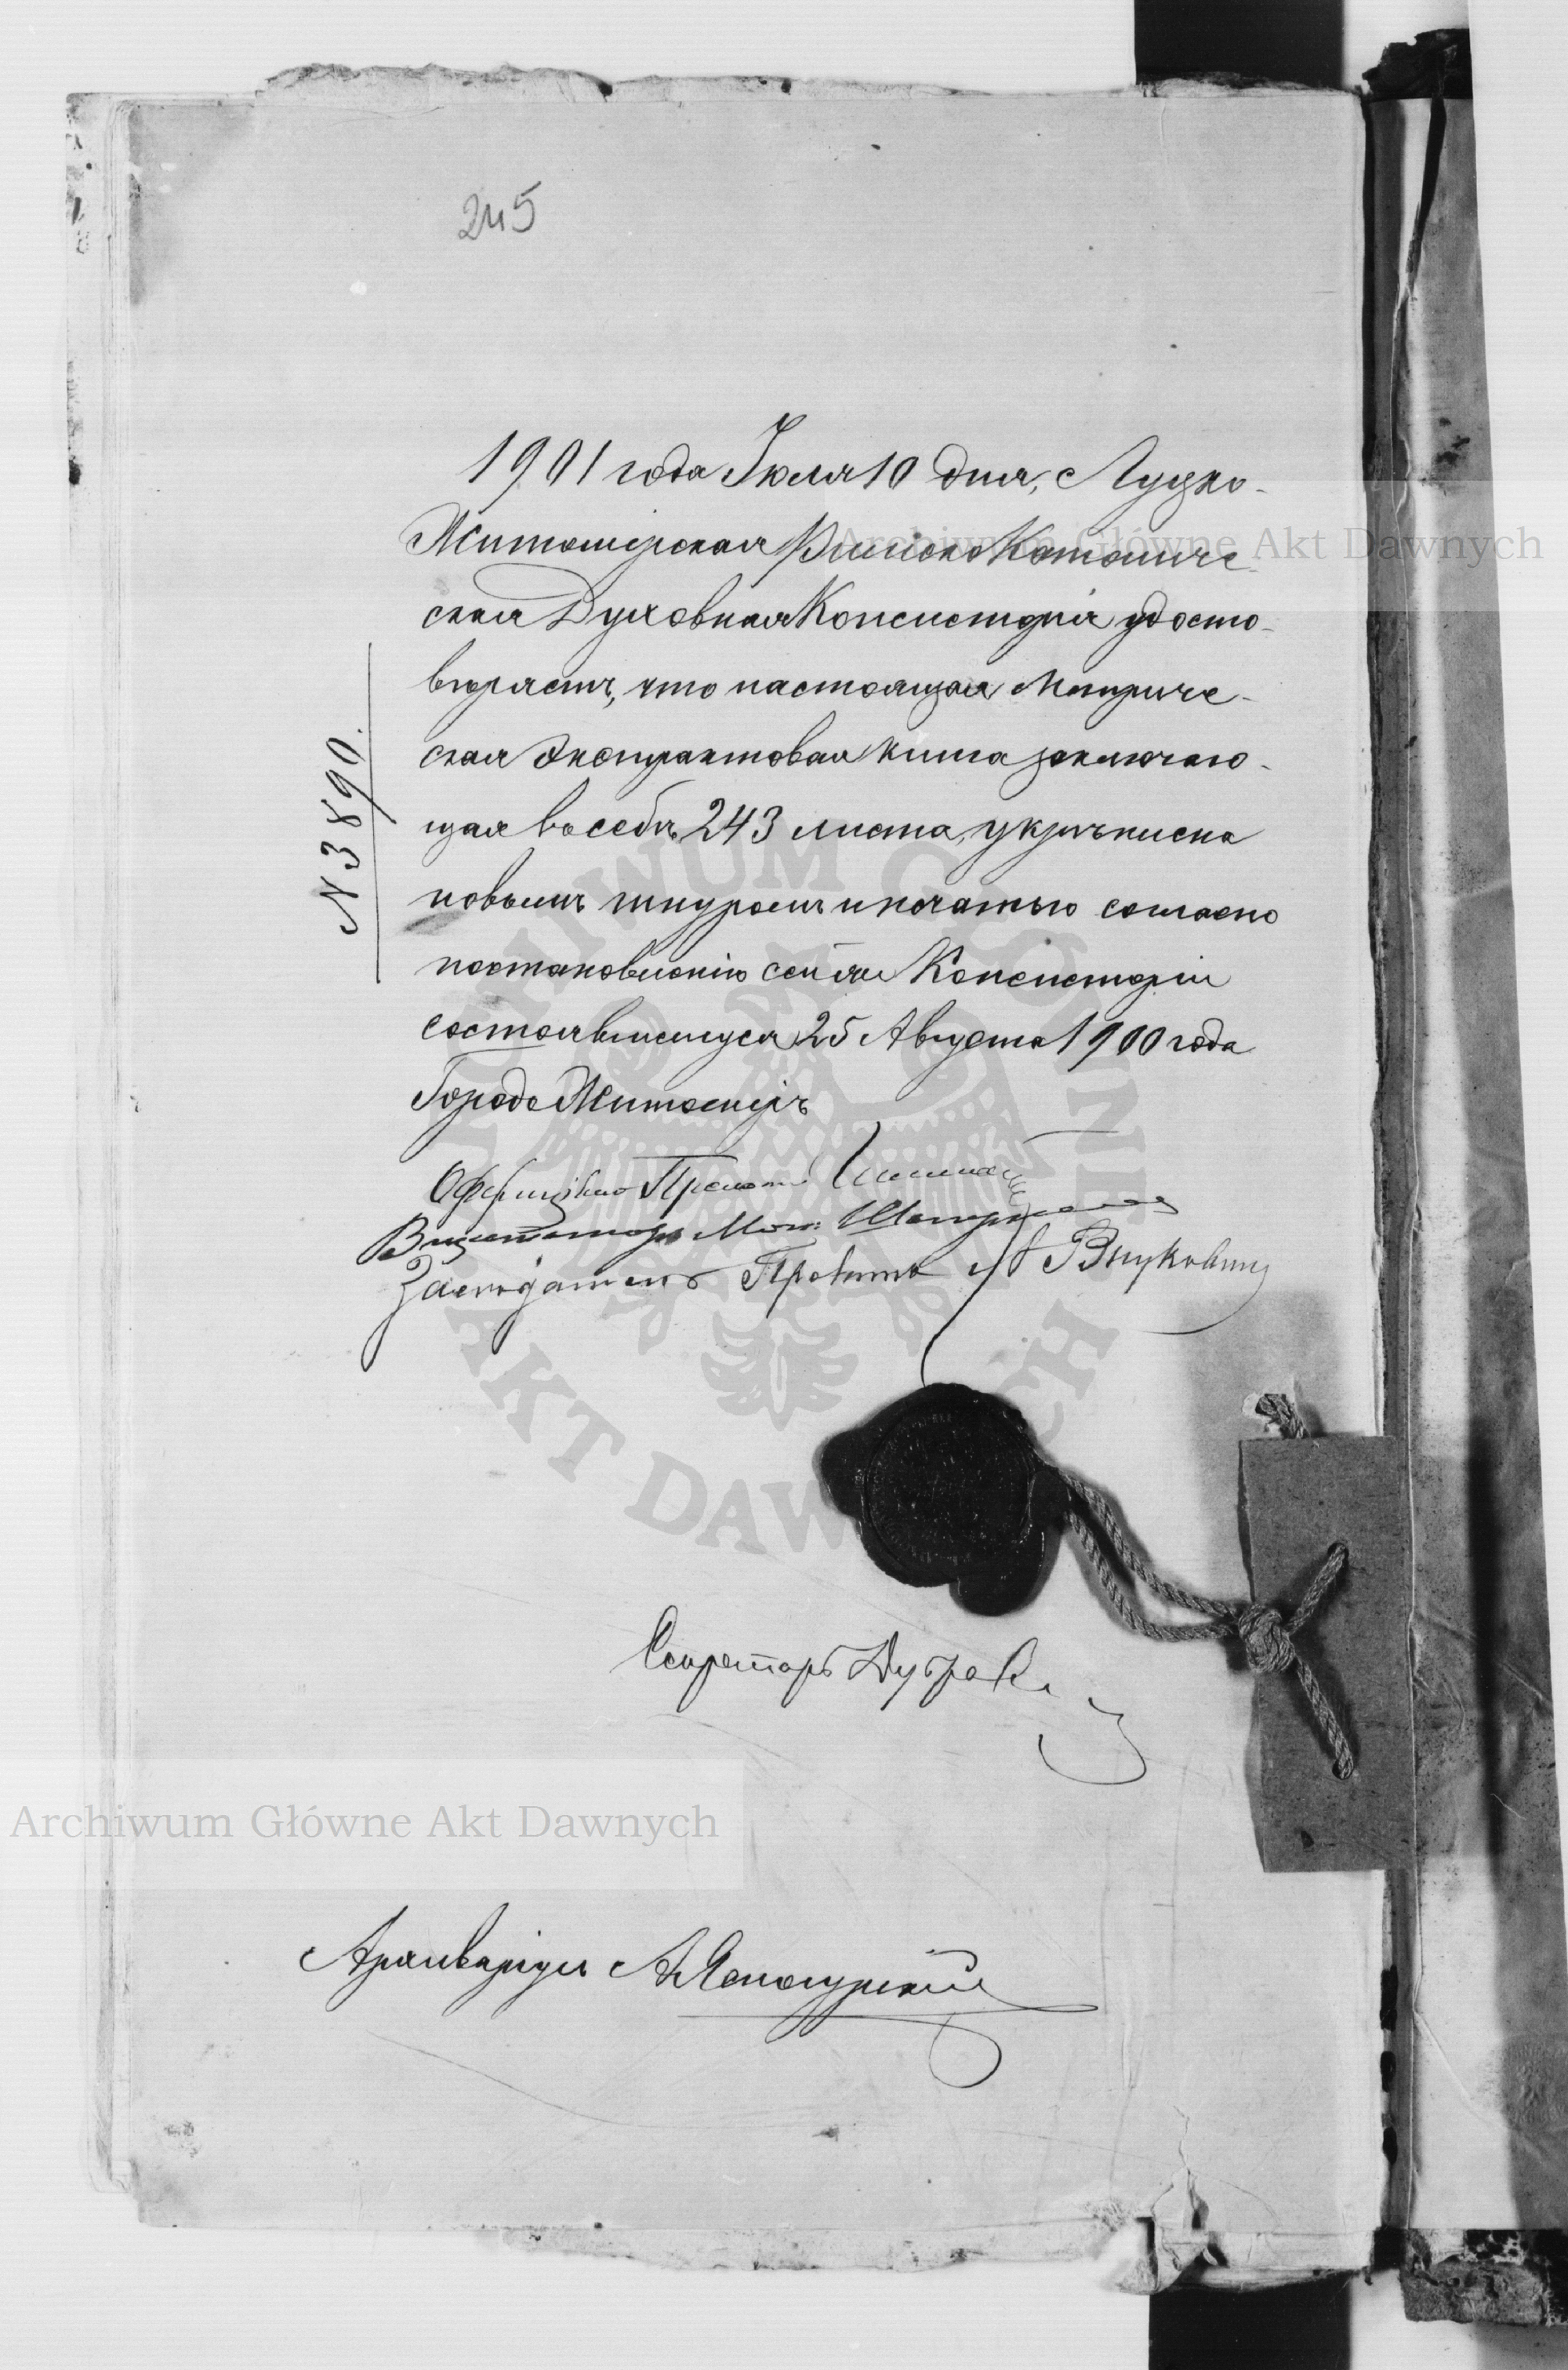 245
1901 года Іюля 10 дня, Луцко-
Житомірская Римско Католиче-
ская Духовная Консисторія удосто-
вѣряетъ, что настоящая Метриче-
ская Экстрактовая книга заключаю-
щая въ себѣ 243 листа, укрѣплена
новымъ шнуромъ и печатью согласно
постановленію сей же Консисторіи
состоявшемуся 25 Августа 1900 года
Городъ Житоміръ
N 3890.
Оффиціалъ Прелатъ
Визитаторъ Мон:
Засѣдатель Прелатъ Внукович
Секретарь
Архиваріусъ А.
Archiwum Główne Akt Dawnych
Archiwum Główne Akt Dawnych
ARCHIWUM GŁÓWNE AKT DAWNYCH